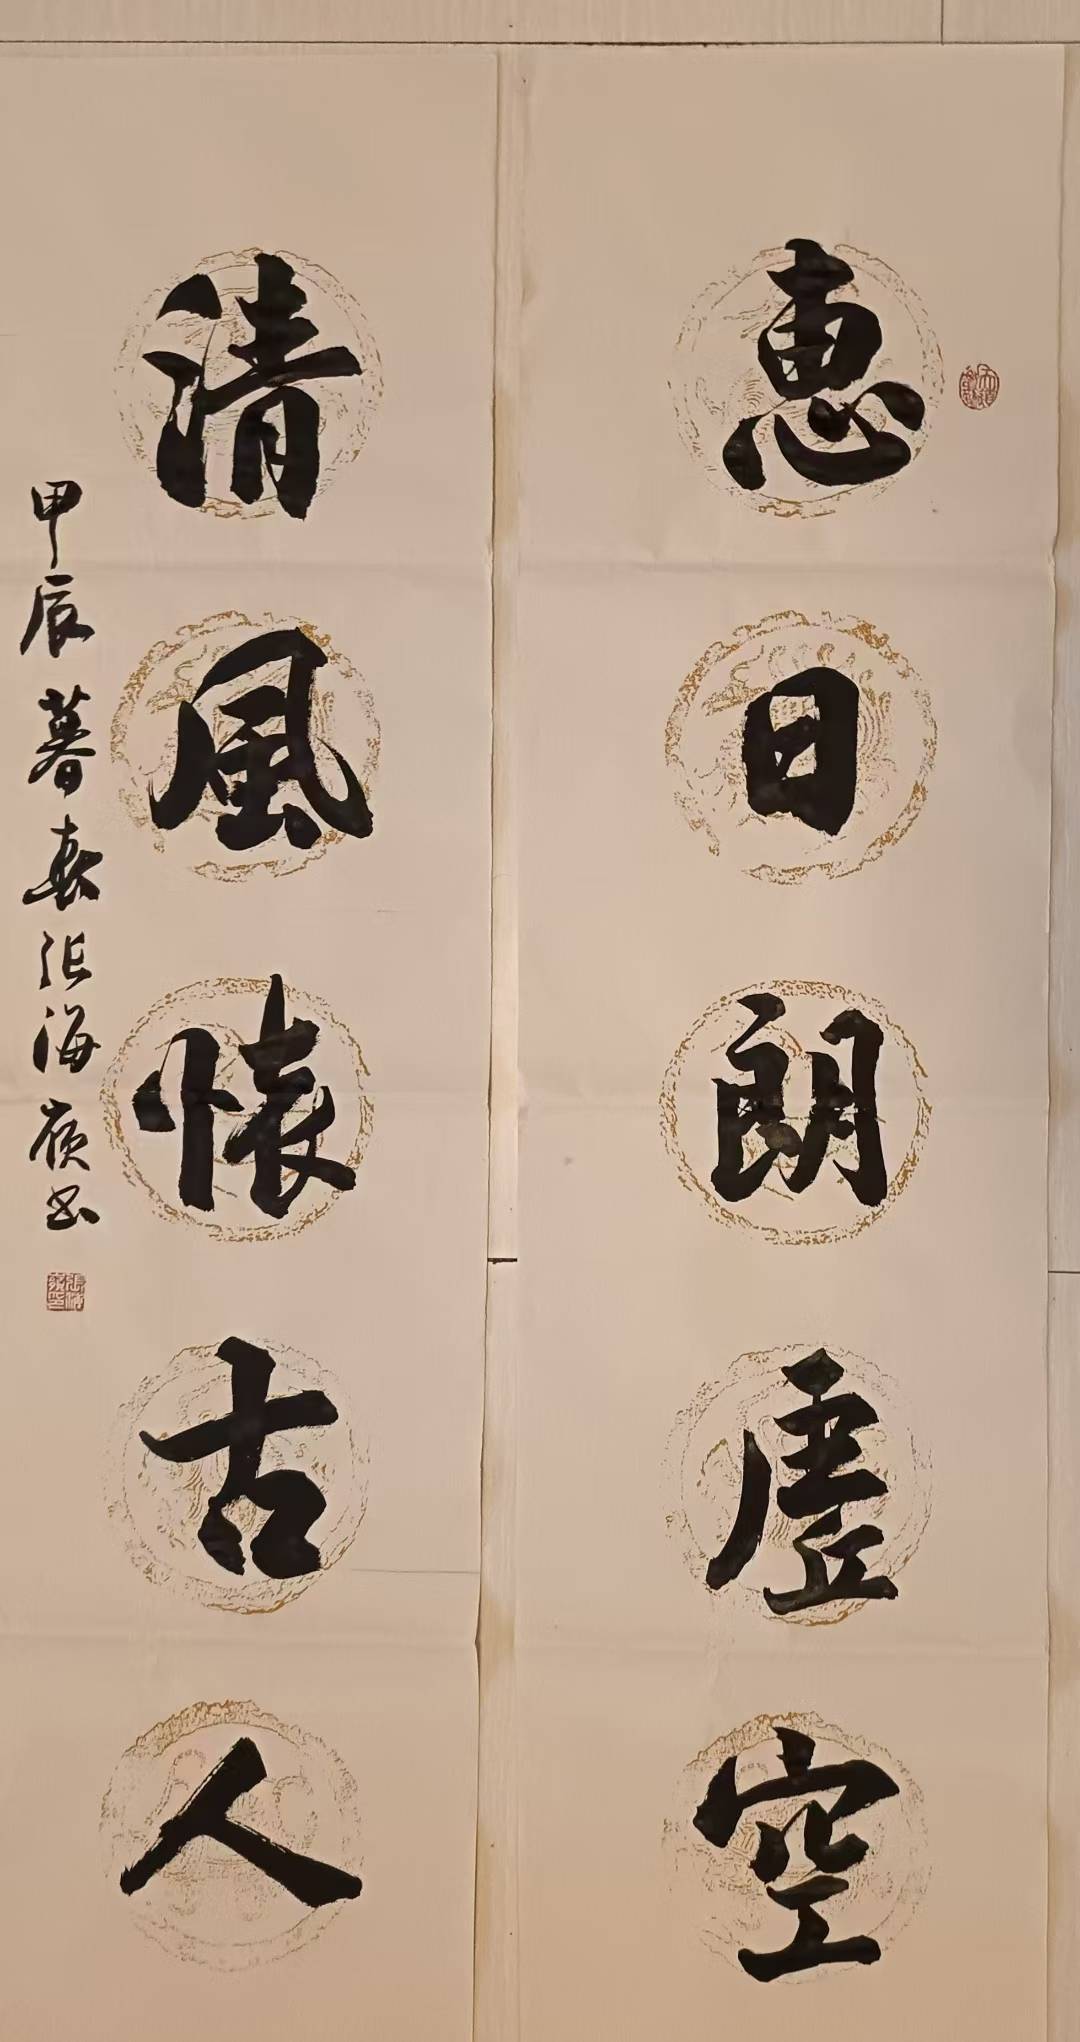 惠日朗虚空
清風懷古人
甲辰暮春張海嶺书